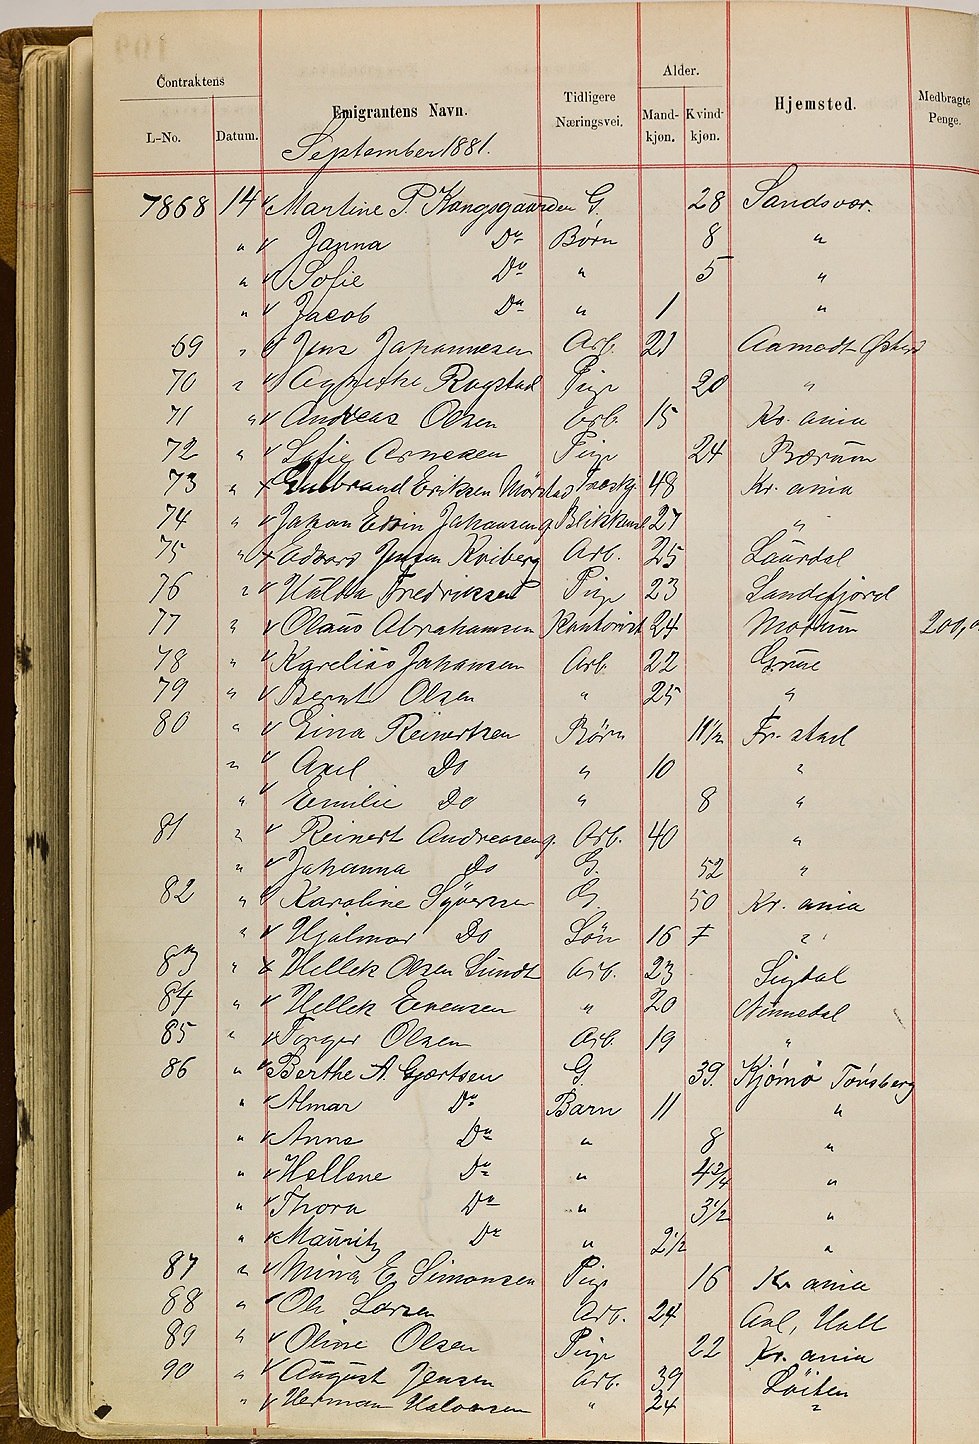 Contraktens
L-No. Datum. Emigrantens Navn. Tidligere Næringsvei. Alder. Mandkjøn. Kvindkjøn. Hjemsted. Medbragte Penge.
September 1881.
7868 14 Martine P. Kongsgaarden G. 28 Sandsvær.
" Janna Do Børn 8 "
" Sofie Do " 5 "
" Jacob Do " 1 "
69 " Jens Johannesen Arb. 21 Aamodt
70 " Agnethe Rogstad Pige 20 "
71 " Andreas Olsen Arb. 15 Kr. ania
72 " Sofie Arnesen Pige 24 Bærum
73 " Gulbrand Eriksen 48 Kr. ania
74 " Johan Edvin Johansen g. 27 "
75 " Edvard Jensen Kviberg Arb. 25 Laurdal
76 " Hulda Fredriksen Pige 23 Sandefjord
77 " Olaus Abrahamsen Kontorist 24 Modum
78 " Karelius Johansen Arb. 22 Grue
79 " Bernt Olsen " 25 "
80 " Eina Reinertsen Børn 11 1/2 Fr. stad
" Axel Do " 10 "
" Emilie Do " 8 "
81 " Reinert Andreasen g. Arb. 40 "
" Johanna Do G. 52 "
82 " Karoline Syversen G. 50 Kr. ania
" Hjalmar Do Søn 16 "
83 " Hellek Olsen Sundt Arb. 23 Sigdal
84 " Hellek Evensen " 20
85 " Torger Olsen Arb. 19 "
86 " Berthe A. Gjertsen G. 39. Kjömö Tönsberg
" Almar Do Barn 11 "
" Anna Do " 8 "
" Hellene Do " 4 "
" Thora Do " 3 1/2 "
" Mauritz Do " 2 1/2 "
87 " Mina E. Simonsen Pige 16 Kr ania
88 " Ole Larsen Arb. 24 Aal, Hall
89 " Oline Olsen Pige 22 Kr. ania
90 " August Jensen Arb. 39 Löiten
" Herman Halvorsen " 24 "